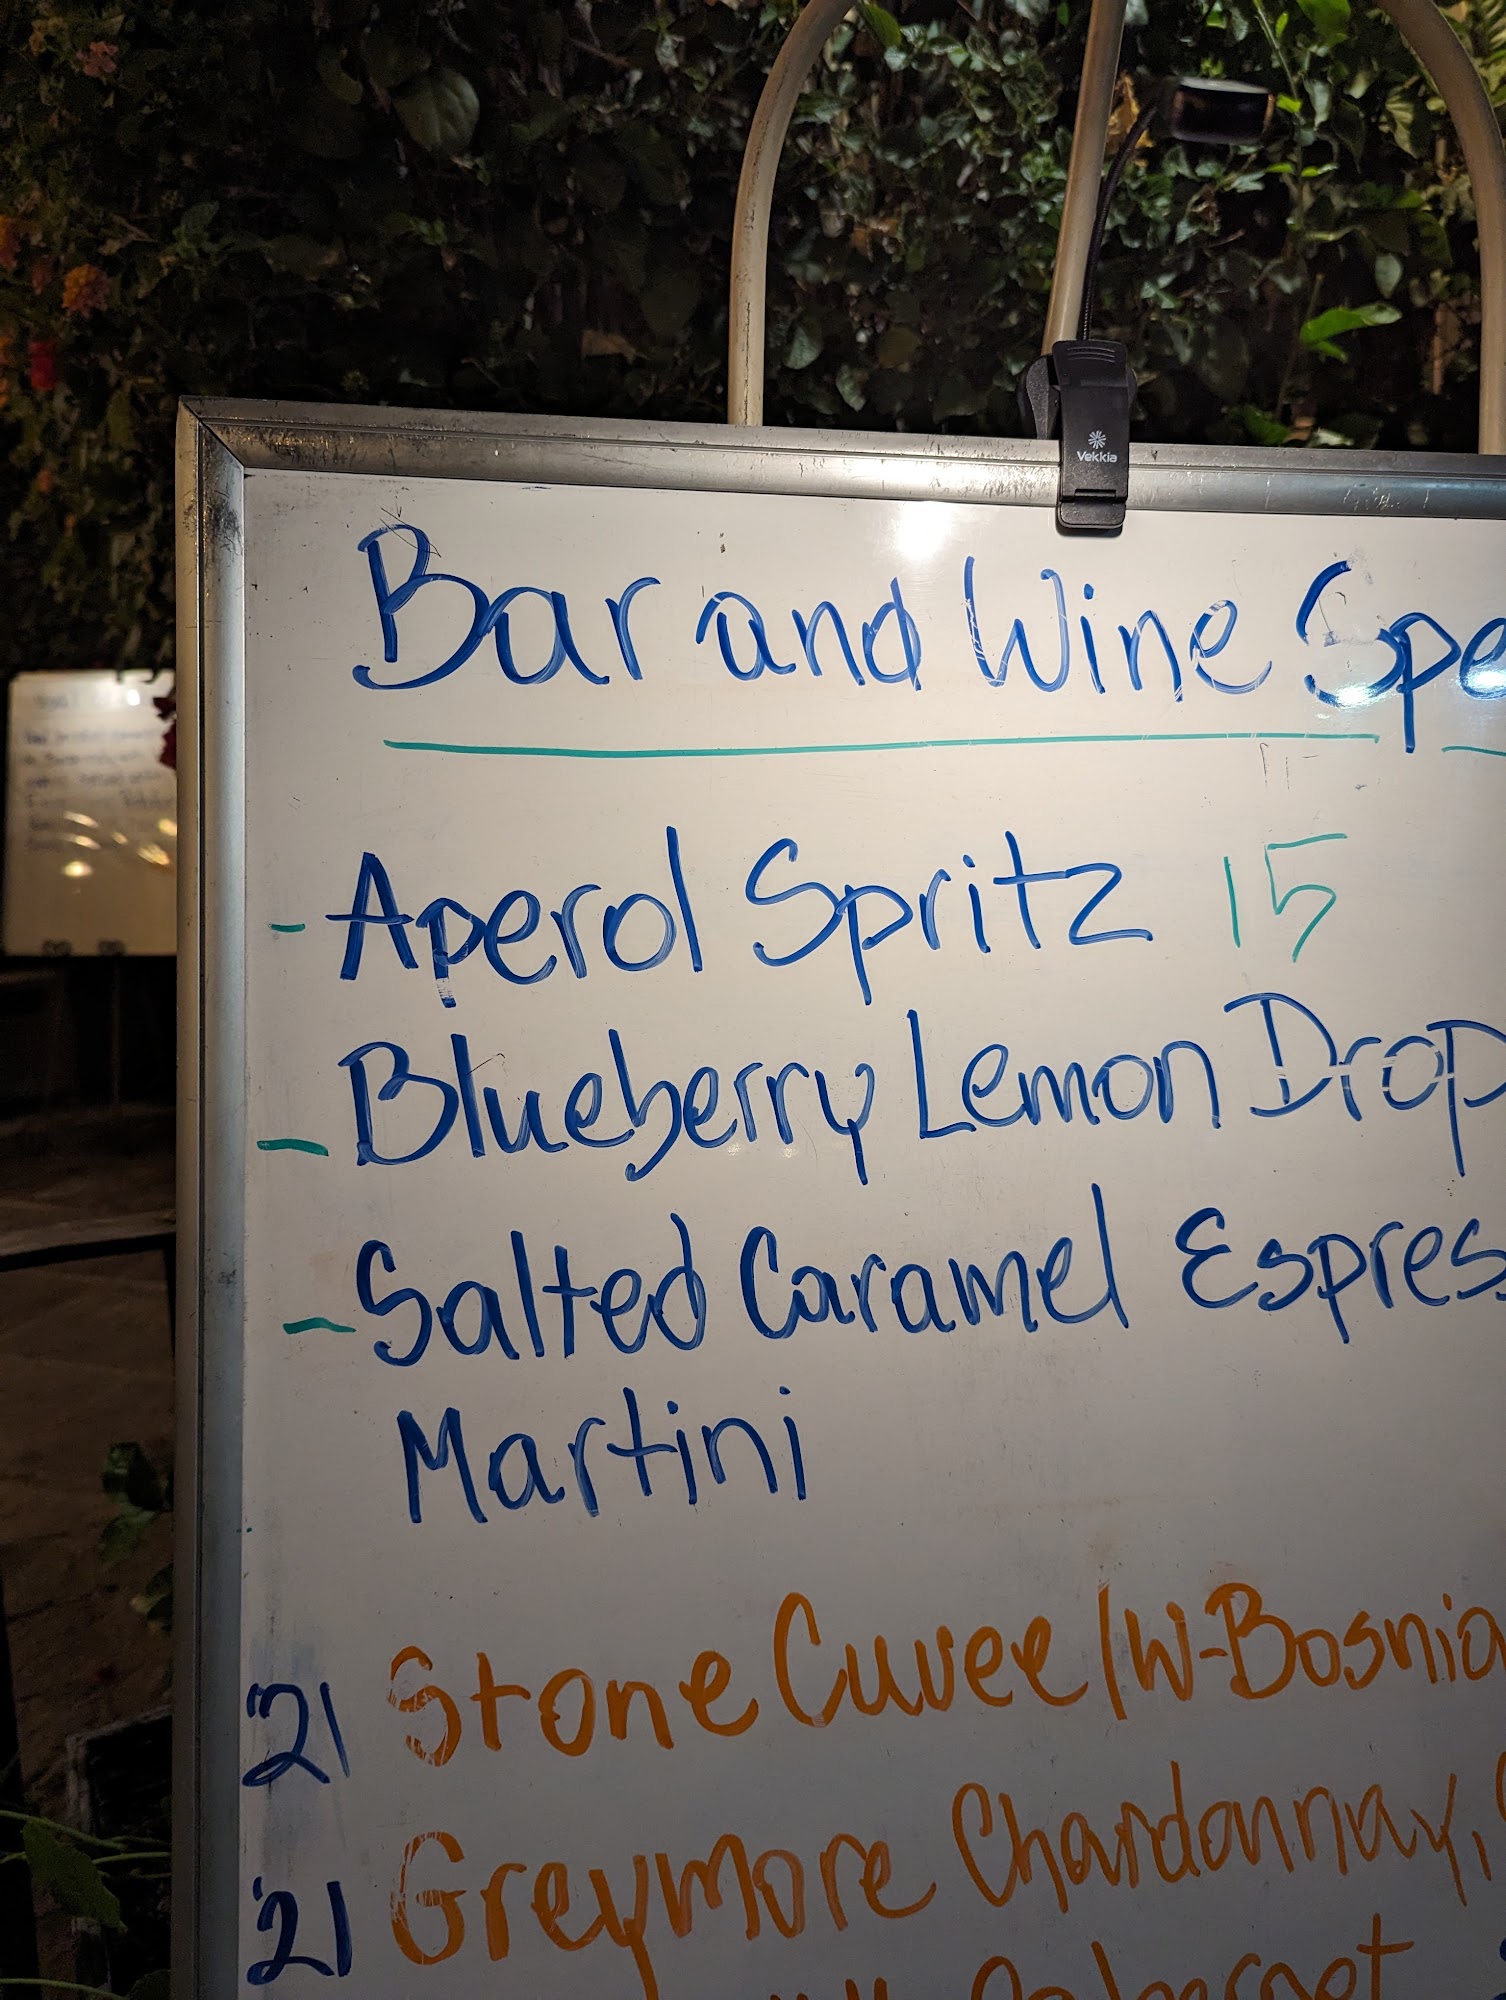 Vekkia
Bar and Wine Spe
- Aperol Spritz 15
- Blueberry Lemon Drop
- Salted Caramel Espres
Martini
'21 Stone Cuvee / W-Bosnia
'21 Greymore Chardonnay,
Cabernet